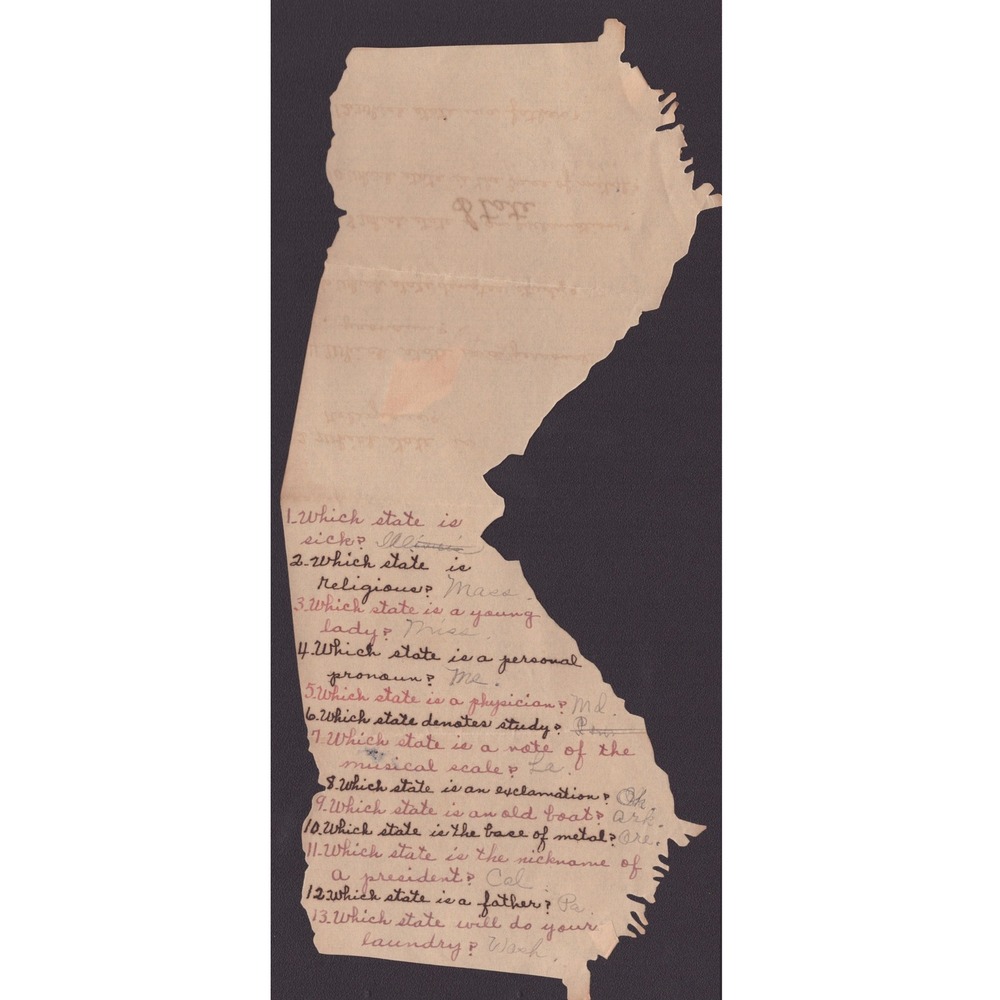 State
1. Which state is
sick? Illinois
2. Which state is
religious? Mass.
3. Which state is a young
lady? Miss.
4. Which state is a personal
pronoun? Me.
5. Which state is a physician? Md.
6. Which state denotes study?
7. Which state is a note of the
musical scale? La.
8. Which state is an exclamation? Oh.
9. Which state is an old boat? Ark.
10. Which state is the base of metal? Ore.
11. Which state is the nickname of
a president? Cal.
12. Which state is a father? Pa.
13. Which state will do your
laundry? Wash.